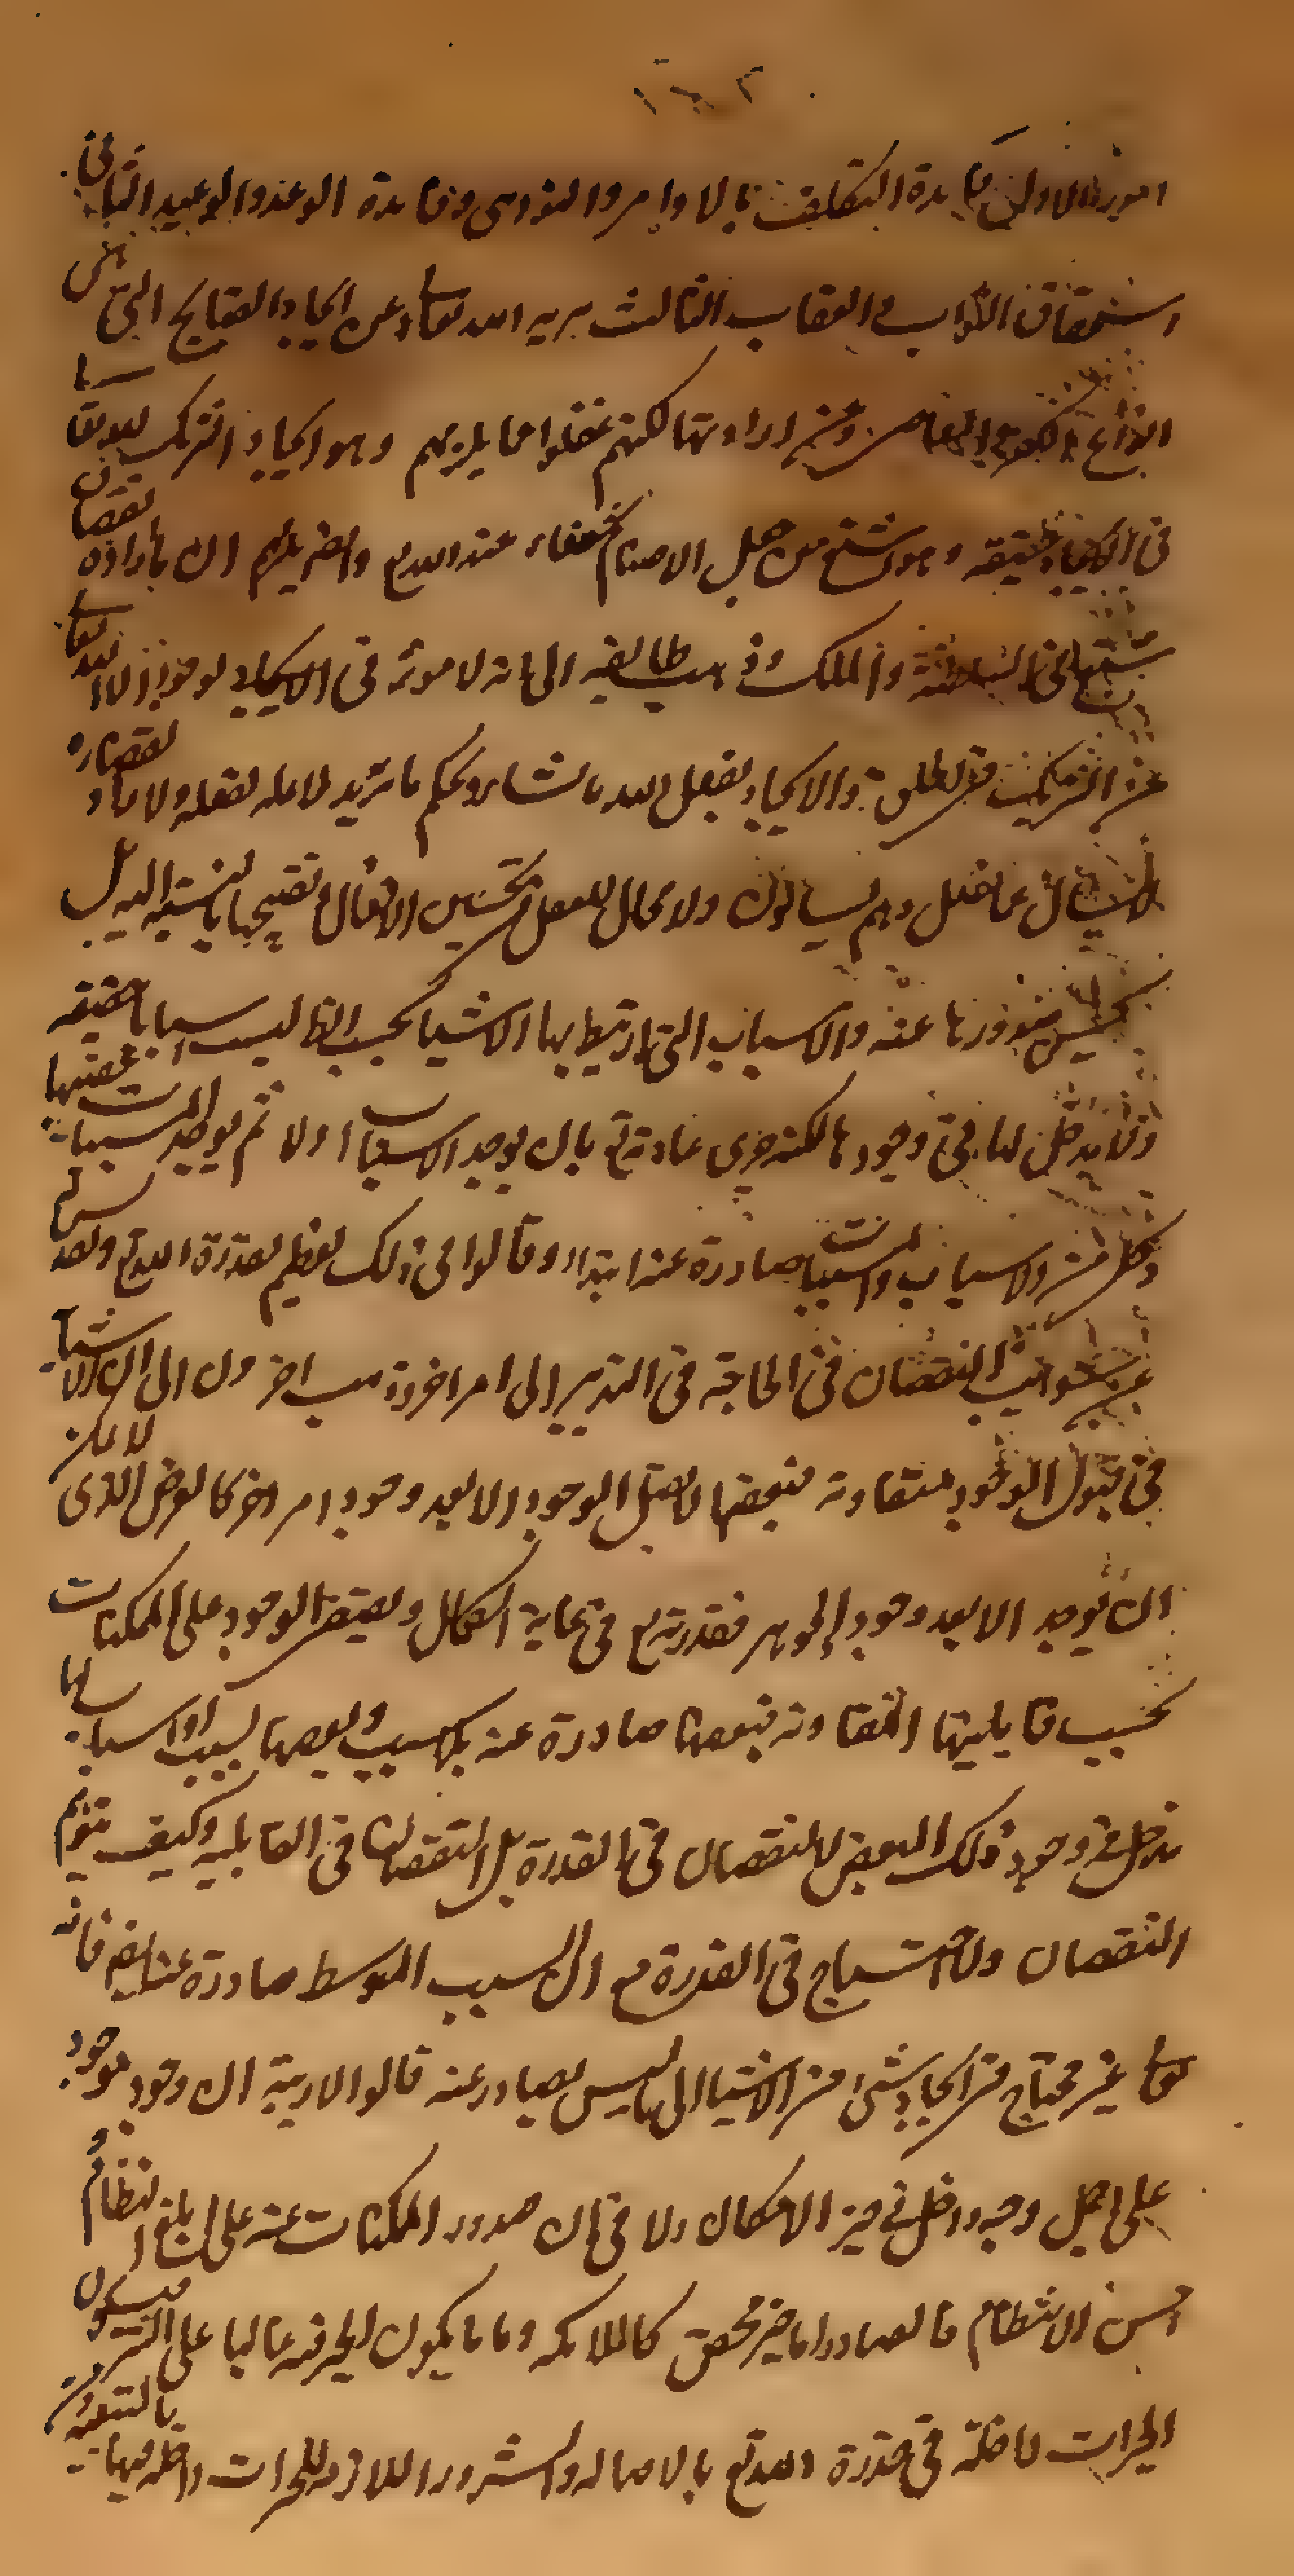 ١٦٢
امور الاول فايدة التكليف بالاوامر والنواهى وفايدة الوعد والوعيد الثانى
استحقاق الثواب والعقاب الثالث تنزيه الله تعالى عن ايجاد القبايح التى هى
انواع الكفر والمعاصى وعن ارادتها لكنهم غفلوا عما يلزمهم وهو ايجاد الشرك لله تعالى
فى الايجاد حقيقة وهو اشنع من جعل الاصنام شفعاء عند الله تع وايضا يلزم ان ما اراده
السلطنة والملك وذهب طايفة الى انه لا موثر فى الايجاد لوجود الا الله تعالى
عن الشريك فى الخلق والايجاد يفعل الله ما يشاء ويحكم ما يريد لا علة لفعله ولا راد لقضاءه
لا يسأل عما يفعل وهم يسألون ولا مجال للعقل فى تحسين الافعال وتقبيحها بالنسبة اليه بل
يحسن صدورها عنه والاسباب التى ارتبط بها الاشياء بحسب الظ ليست اسبابا حقيقة
ولا مدخل لها فى وجودها لكنه جرى عادته تع بان يوجد الاسباب اولا ثم يوجد المسببات عقيبها
وكل من الاسباب والمسببات صادرة عنه ابتداء وقالوا فى ذلك تعظيم لقدرة الله تع وتقديس لها
عن شوايب النقصان فى الحاجة فى التدبير الى امر اخر وذهب اخرون الى ان الاشياء
فى قبول الوجود متفاوتة فبعضها لا يقبل الوجود الا بعد وجود امر اخر كالعرض الذى لا يمكن
ان يوجد الا بعد وجود الجوهر فقدرته تع فى غاية الكمال ويفيض الوجود على الممكنات
بحسب قابليتها المتفاوتة فبعضها صادرة عنه بلا سبب وبعضها بسبب او اسباب لها
مدخل فى وجود ذلك البعض لا لنقصان فى القدرة بل لنقصان فى القابلية وكيف يتوهم
النقصان والاحتياج فى القدرة مع ان السبب المتوسط صادرة عنه ايضا فانه
تعالى غير محتاج فى ايجاد شئ من الاشياء الى ما ليس بصادر عنه قالوا لا ريبة ان وجود موجود
على اجمل وجه داخل فى حيز الامكان ولا فى ان صدور الممكنات عنه على ابلغ النظام و
احسن الانتظام فالصادر اما خير محض كالملائكة واما ما يكون الخير فيه غالبا على الشر فيكون
الخيرات داخلة فى قدرة الله تع بالاصالة والشرور اللازمة للخيرات داخلة فيها بالتبعية